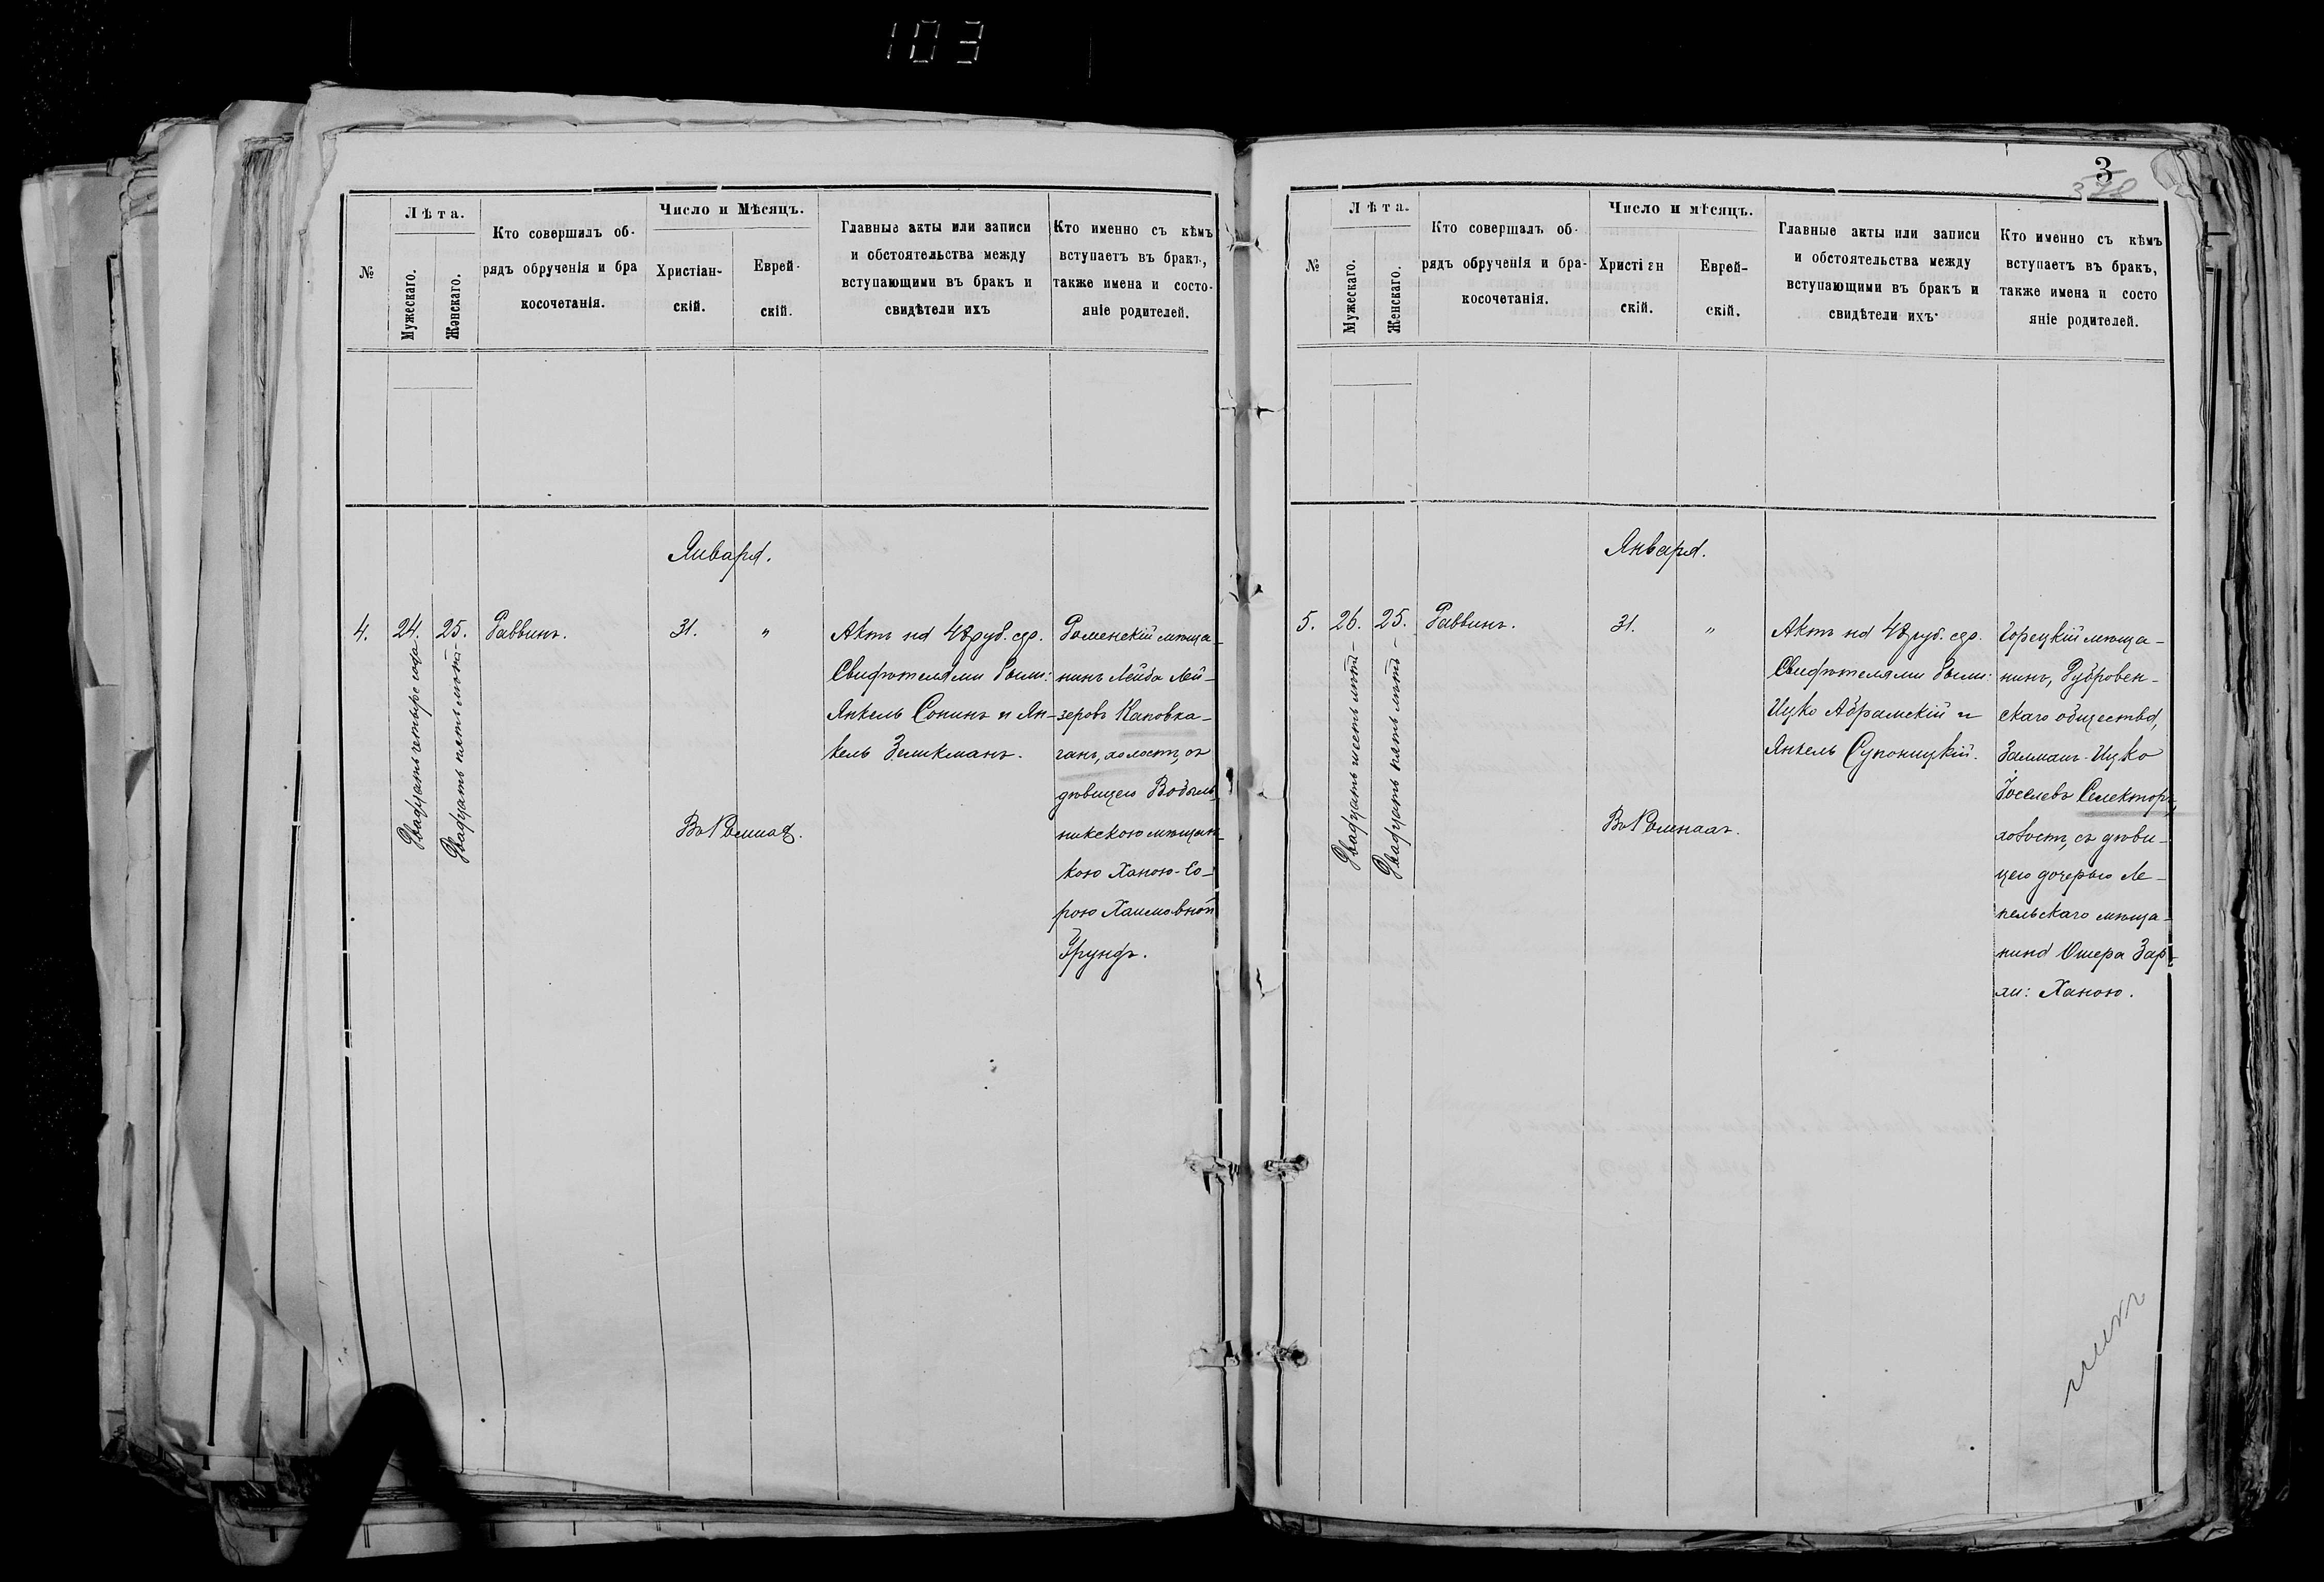 103
№
Лѣта.
Мужескаго.
Женскаго.
Кто совершалъ об-
рядъ обрученія и бра
косочетанія.
Число и Мѣсяцъ.
Христіан-
скій.
Еврей-
скій.
Главные акты или записи
и обстоятельства между
вступающими въ бракъ и
свидѣтели ихъ
Кто именно съ кѣмъ
вступаетъ въ бракъ,
также имена и состо-
яніе родителей.
Января.
4.
24.
Двадцать четыре года
25.
Двадцать пять лѣтъ
Раввинъ.
31.
"
Въ Ромнах.
Актъ на 48 руб. сер.
Свидѣтелями были:
Янкель Сонинъ и Ян-
кель Зеликманъ.
Роменскій мѣща-
нинъ Лейба Лей-
зеровъ Каповка-
ганъ, холостъ, съ
дѣвицею
мѣщан-
кою Ханою-Со-
рою Хаимовной
Грундъ.
3
№
Лѣта.
Мужескаго.
Женскаго.
Кто совершалъ об-
рядъ обрученія и бра-
косочетанія.
Число и мѣсяцъ.
Христі н
скій.
Еврей-
скій.
Главные акты или записи
и обстоятельства между
вступающими въ бракъ и
свидѣтели ихъ
Кто именно съ кѣмъ
вступаетъ въ бракъ,
также имена и состо
яніе родителей.
Января.
5.
26.
Двадцать шесть лѣтъ
25.
Двадцать пять лѣтъ
Раввинъ.
31.
"
Въ Ромнахъ.
Актъ на 48 руб. сер.
Свидѣтелями были:
Ицко Абрамскій и
Янкель Супоницкій.
Горецкій мѣща-
нинъ, Дубровен-
скаго общества,
Залманъ-Ицко
Іоселевъ Селекторъ,
холостъ, съ дѣви-
цею дочерью Ле-
пельскаго мѣща-
нина Ошера Зар-
хи: Ханою.